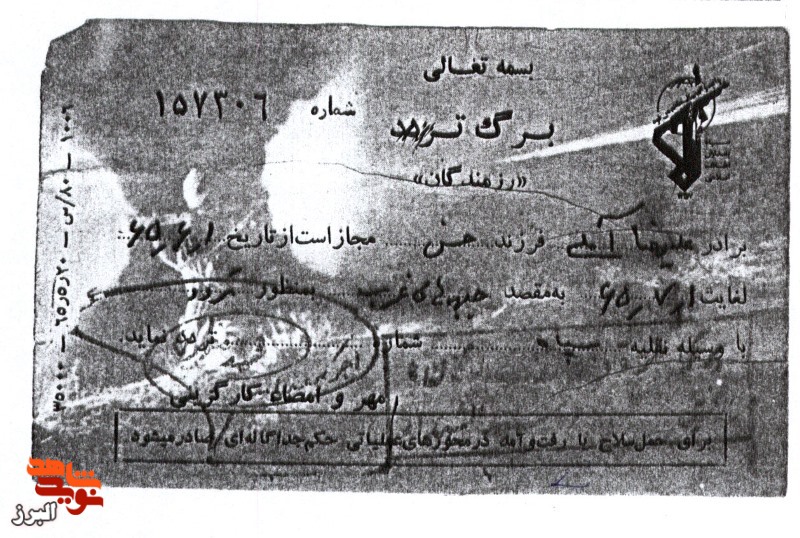 بسمه تعالی
شماره ۱۵۷۳۰۶
برگ تردد
«رزمندگان»
برادر علیرضا آملی فرزند حسن مجاز است از تاریخ ۶۵٫۶٫۱
لغایت ۶۵٫۷٫۱ به مقصد جبهه های غرب بمنظور
با وسیله نقلیه سپاه شماره تردد نماید.
مهر و امضاء کارگزینی
برای حمل سلاح یا رفت و آمد در محورهای عملیاتی حکم جداگانه‌ای صادر میشود
۳۵۰۰۰ — ۶۵٫۵٫۲۰ — س/۸۰ — ۱۰۰۶
نوید شاهد
البرز